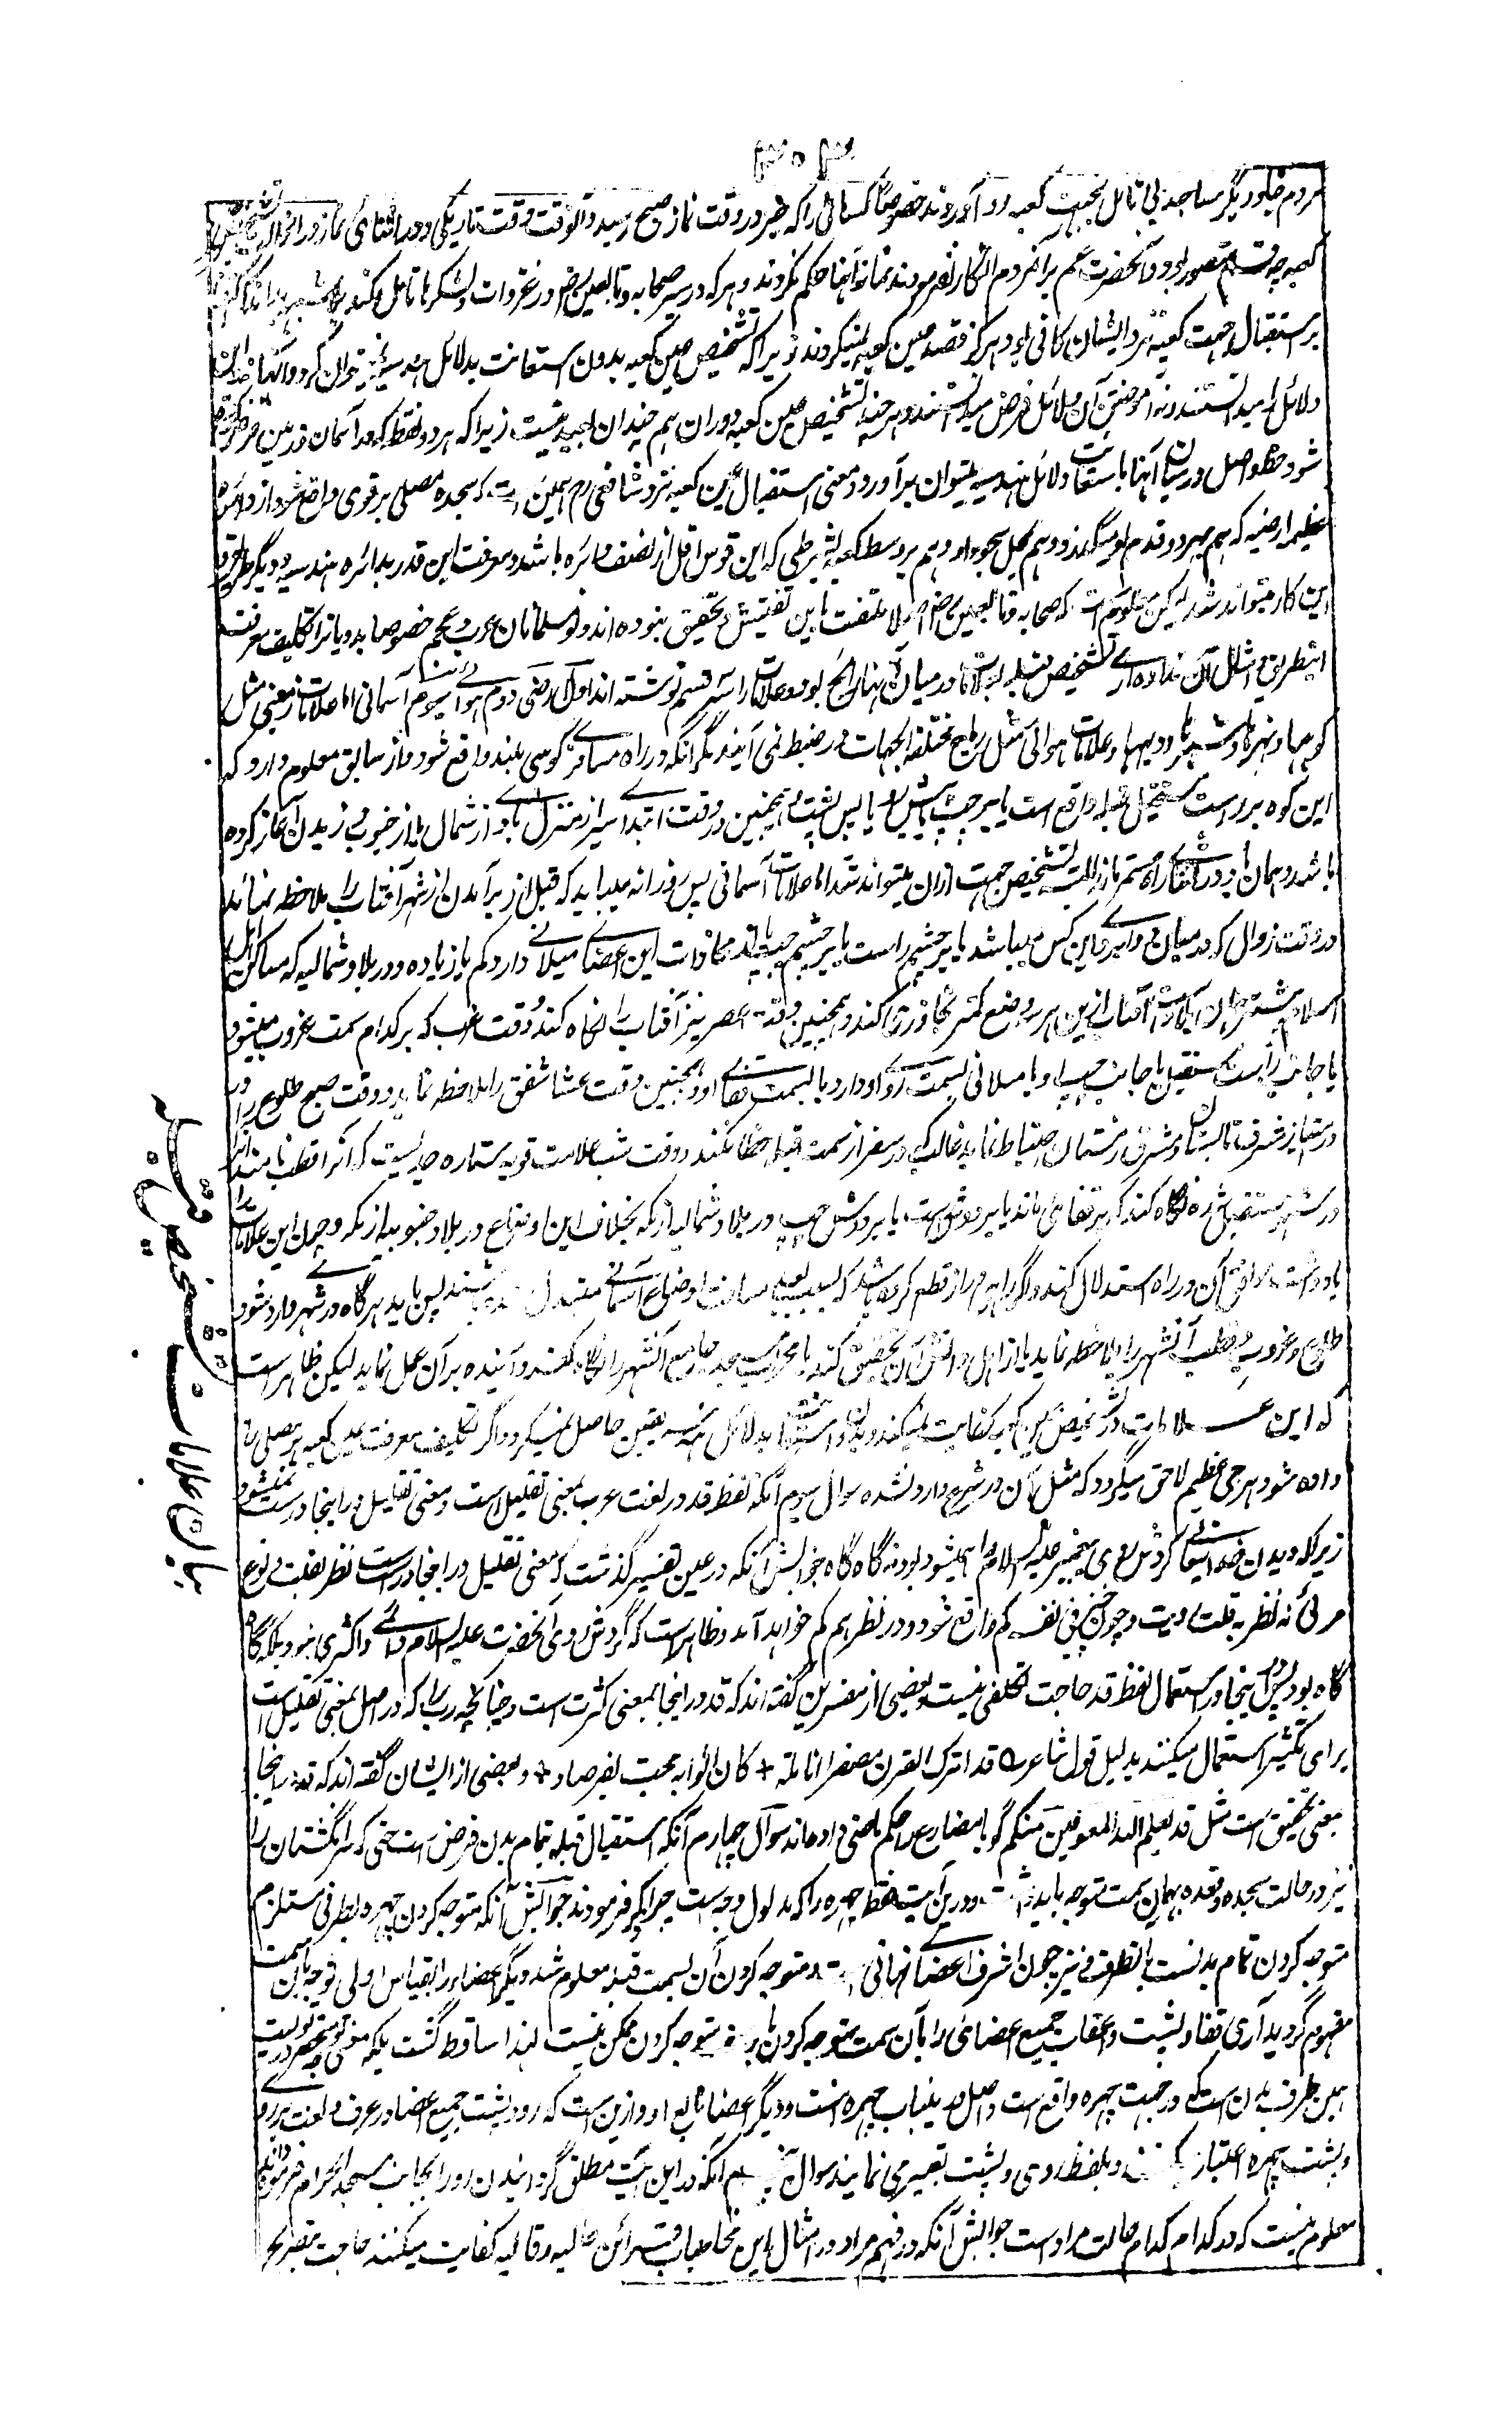 مردم قبا و دیگر مساجد بی تامل بجهت کعبه رو آوردند خصوصاً کسانی را که خبر در وقت نماز صبح رسید و آنوقت وقت تاریکی و در اثنای نماز
کعبه چه قسم متصور بود و آنحضرت صلعم بر آنمردم انکار نفرمودند بنماز آنها حکم نکردند و هر که در سیر صحابه و تابعین در غزوات و لشکرها تامل کند
بر استقبال جهت کعبه نزد ایشان کافی بود و هرگز قصد عین کعبه نمیکردند زیرا که تشخیص عین کعبه بدون استعانت بدلائل هندسیه نمیتوان کرد و آنها
دلائل را نمیدانستند و نه آموختن آن دلائل فرض میدانستند و هر چند تشخیص عین کعبه دوران هم چندان بعید نیست زیرا که هر دو نقطه که در آسمان و زمین
شود خط واصل در میان آنها باستعانت دلائل هندسیه میتوان برآورد و معنی استقبال عین کعبه نزد شافعی رح همین است که سجده مصلی بر قوی واقع شود از دوائر
عظیمه ارضیه که هم بهر دو قدم او میگذرد و هم بمحل سجود او و هم بر وسط کعبه بشرطی که این قوس اقل از نصف دائره باشد و معرفت این قدر بدائره هندسیه و دیگر طرق
این کار میتواند شد لیکن معلوم است که صحابه و تابعین اصلا ملتفت باین تفتیش و تحقیق نبوده اند و مسلمانان عرب و عجم خصوصا بدویان را تکلیف معرفت
اینطریق و امثال آن نداده اند تشخیص قبله در میان آنها رائج بود و علامات را سه قسم نوشته اند اول ارضی دوم هوائی سیوم آسمانی اما علامات زمینی مثل
کوهها و نهرها و شهرها و دیهها و علامات هوائی مثل ریاح مختلفة الجهات در ضبط نمی آیند مگر آنکه در راه مسافری کوهی بلند واقع شود و از سابق معلوم دارد که
این کوه بر راست مستقبل قبله واقع است یا بر چپ یا پیش رو یا پس پشت و همچنین در وقت ابتداء سیر از منزل باد از شمال یا از جنوب وزیدن آغاز کرده
باشد و همان باد در اثنای راه مستمر ماند البته تشخیص جهت از ان میتواند شد اما علامات آسمانی پس روزانه میباید که قبل از برآمدن از شهر آفتاب را ملاحظه نماید
در وقت زوال که در میان دو ابروی این کس میباشد یا بر چشم راست یا بر چشم چپ یا از محاذات این اعضا میلانی دارد کم یا زیاده و در بلاد شمالیه که مساکن اهل
اسلام بیشتر در ان است آفتاب ازین هر سه وضع کمتر تجاوز می کند و همچنین وقت عصر نیز آفتاب را نگاه کند و وقت غروب که بر کدام سمت غروب میشود
یا جانب راست مستقبل یا جانب چپ او یا میلانی بسمت روی او دارد یا بسمت قفای او و همچنین وقت عشا شفق را ملاحظه نماید و وقت صبح طلوع را و در
امتیاز مشرق تابستان و مشرق زمستان احتیاط نماید غالب که در سفر از سمت قبله خطا نکند و وقت شب علامت قویه ستاره جدیست که آنرا قطب نامند
در شهر مستقبل شده نگاه کند که بر قفا می ماند یا بر دوش راست یا بر دوش چپ در بلاد شمالیه از مکه بخلاف این اوضاع در بلاد جنوبیه از مکه و چون این علامات را
یاد داشت موافق آن در راه استدلال کند و اگر راه دور دراز قطع کرده باشد که بسبب بعد مسافت اوضاع آسمانی متبدل شده باشند پس باید هرگاه در شهر وارد شود
طلوع و غروب و قطب آنشهر را ملاحظه نماید یا از اهل دانش آن تحقیق کند یا محراب مسجد جامع آنشهر را نگاه کند و آینده بر آن عمل نماید لیکن ظاهر است
که این علامات در تشخیص عین کعبه کفایت نمیکند و بدون استعانت بدلائل هندسیه یقین حاصل نمیگردد و اگر تکلیف معرفت عین کعبه بر مصلی
داده شود حرجی عظیم لاحق میگردد که مثل آن در شرع وارد نشده سوال سیوم آنکه لفظ قد در لغت عرب بمعنی تقلیل است و معنی تقلیل در اینجا درست نمیشود
زیرا که دیدن خدا تعالی گردش روی پیغمبر علیه السلام را همیشه بود نه گاه گاه جوابش آنکه در عین تفسیر گذشت که معنی تقلیل در اینجا درست است نظر بقلت وقوع
مرئی نه نظر به قلت رویت و چون چیزی فی نفسه کم واقع شود در نظر هم کم خواهد آمد و ظاهر است که گردش روی آنحضرت علیه السلام دائمی و اکثری نبود بلکه گاه
گاه بود پس اینجا در استعمال لفظ قد حاجت تکلفی نیست و بعضی از مفسرین گفته اند که قد در اینجا بمعنی کثرت است چنانچه رب را که در اصل بمعنی تقلیل است
برای تکثیر استعمال میکنند بدلیل قول شاعر قد اترک القرن مصفرا انامله + کان اثوابه مجت بفرصاد + و بعضی از ایشان گفته اند که قد در اینجا
بمعنی تحقیق است مثل قد یعلم الله المعوقین منکم گویا مضارع را حکم ماضی داده اند سوال چهارم آنکه استقبال قبله بتمام بدن فرض است حتی که سر انگشتان را
نیز در حالت سجده و قعده بهمان سمت متوجه باید داشت و درین آیت فقط چهره را که مدلول وجه است چرا ذکر فرمودند جوابش آنکه متوجه کردن چهره بطرفی مستلزم
متوجه کردن تمام بدنست بانطرف و نیز چون اشرف اعضا انسانی است و متوجه کردن آن بسمت قبله معلوم شد دیگر اعضا را بالقیاس اولی توجه باین سمت
مفهوم گردید آری قفا و پشت و اعقاب جمیع اعضای را بآن سمت متوجه کردن با رو متوجه کردن ممکن نیست لهذا ساقط گشت بلکه معنی توجه منحصر در تولیت
همین طرف بدن است که در جهت چهره واقع است و اصل درینباب چهره است و دیگر اعضا تابع او و ازین است که رو و پشت جمیع اعضا در عرف و لغت برو
و پشت چهره اعتبار کنند و بلفظ روی و پشت تعبیر می نمایند سوال پنجم آنکه در این آیت مطلق گردانیدن رو را بجانب مسجد الحرام فرموده اند
معلوم نیست که در کدام کدام حالت مراد است جوابش آنکه در فهم مراد در امثال این مخاطبات قرائن حالیه و قالیه کفایت میکنند حاجت بتصریح
بیان علامات تشخیص قبله